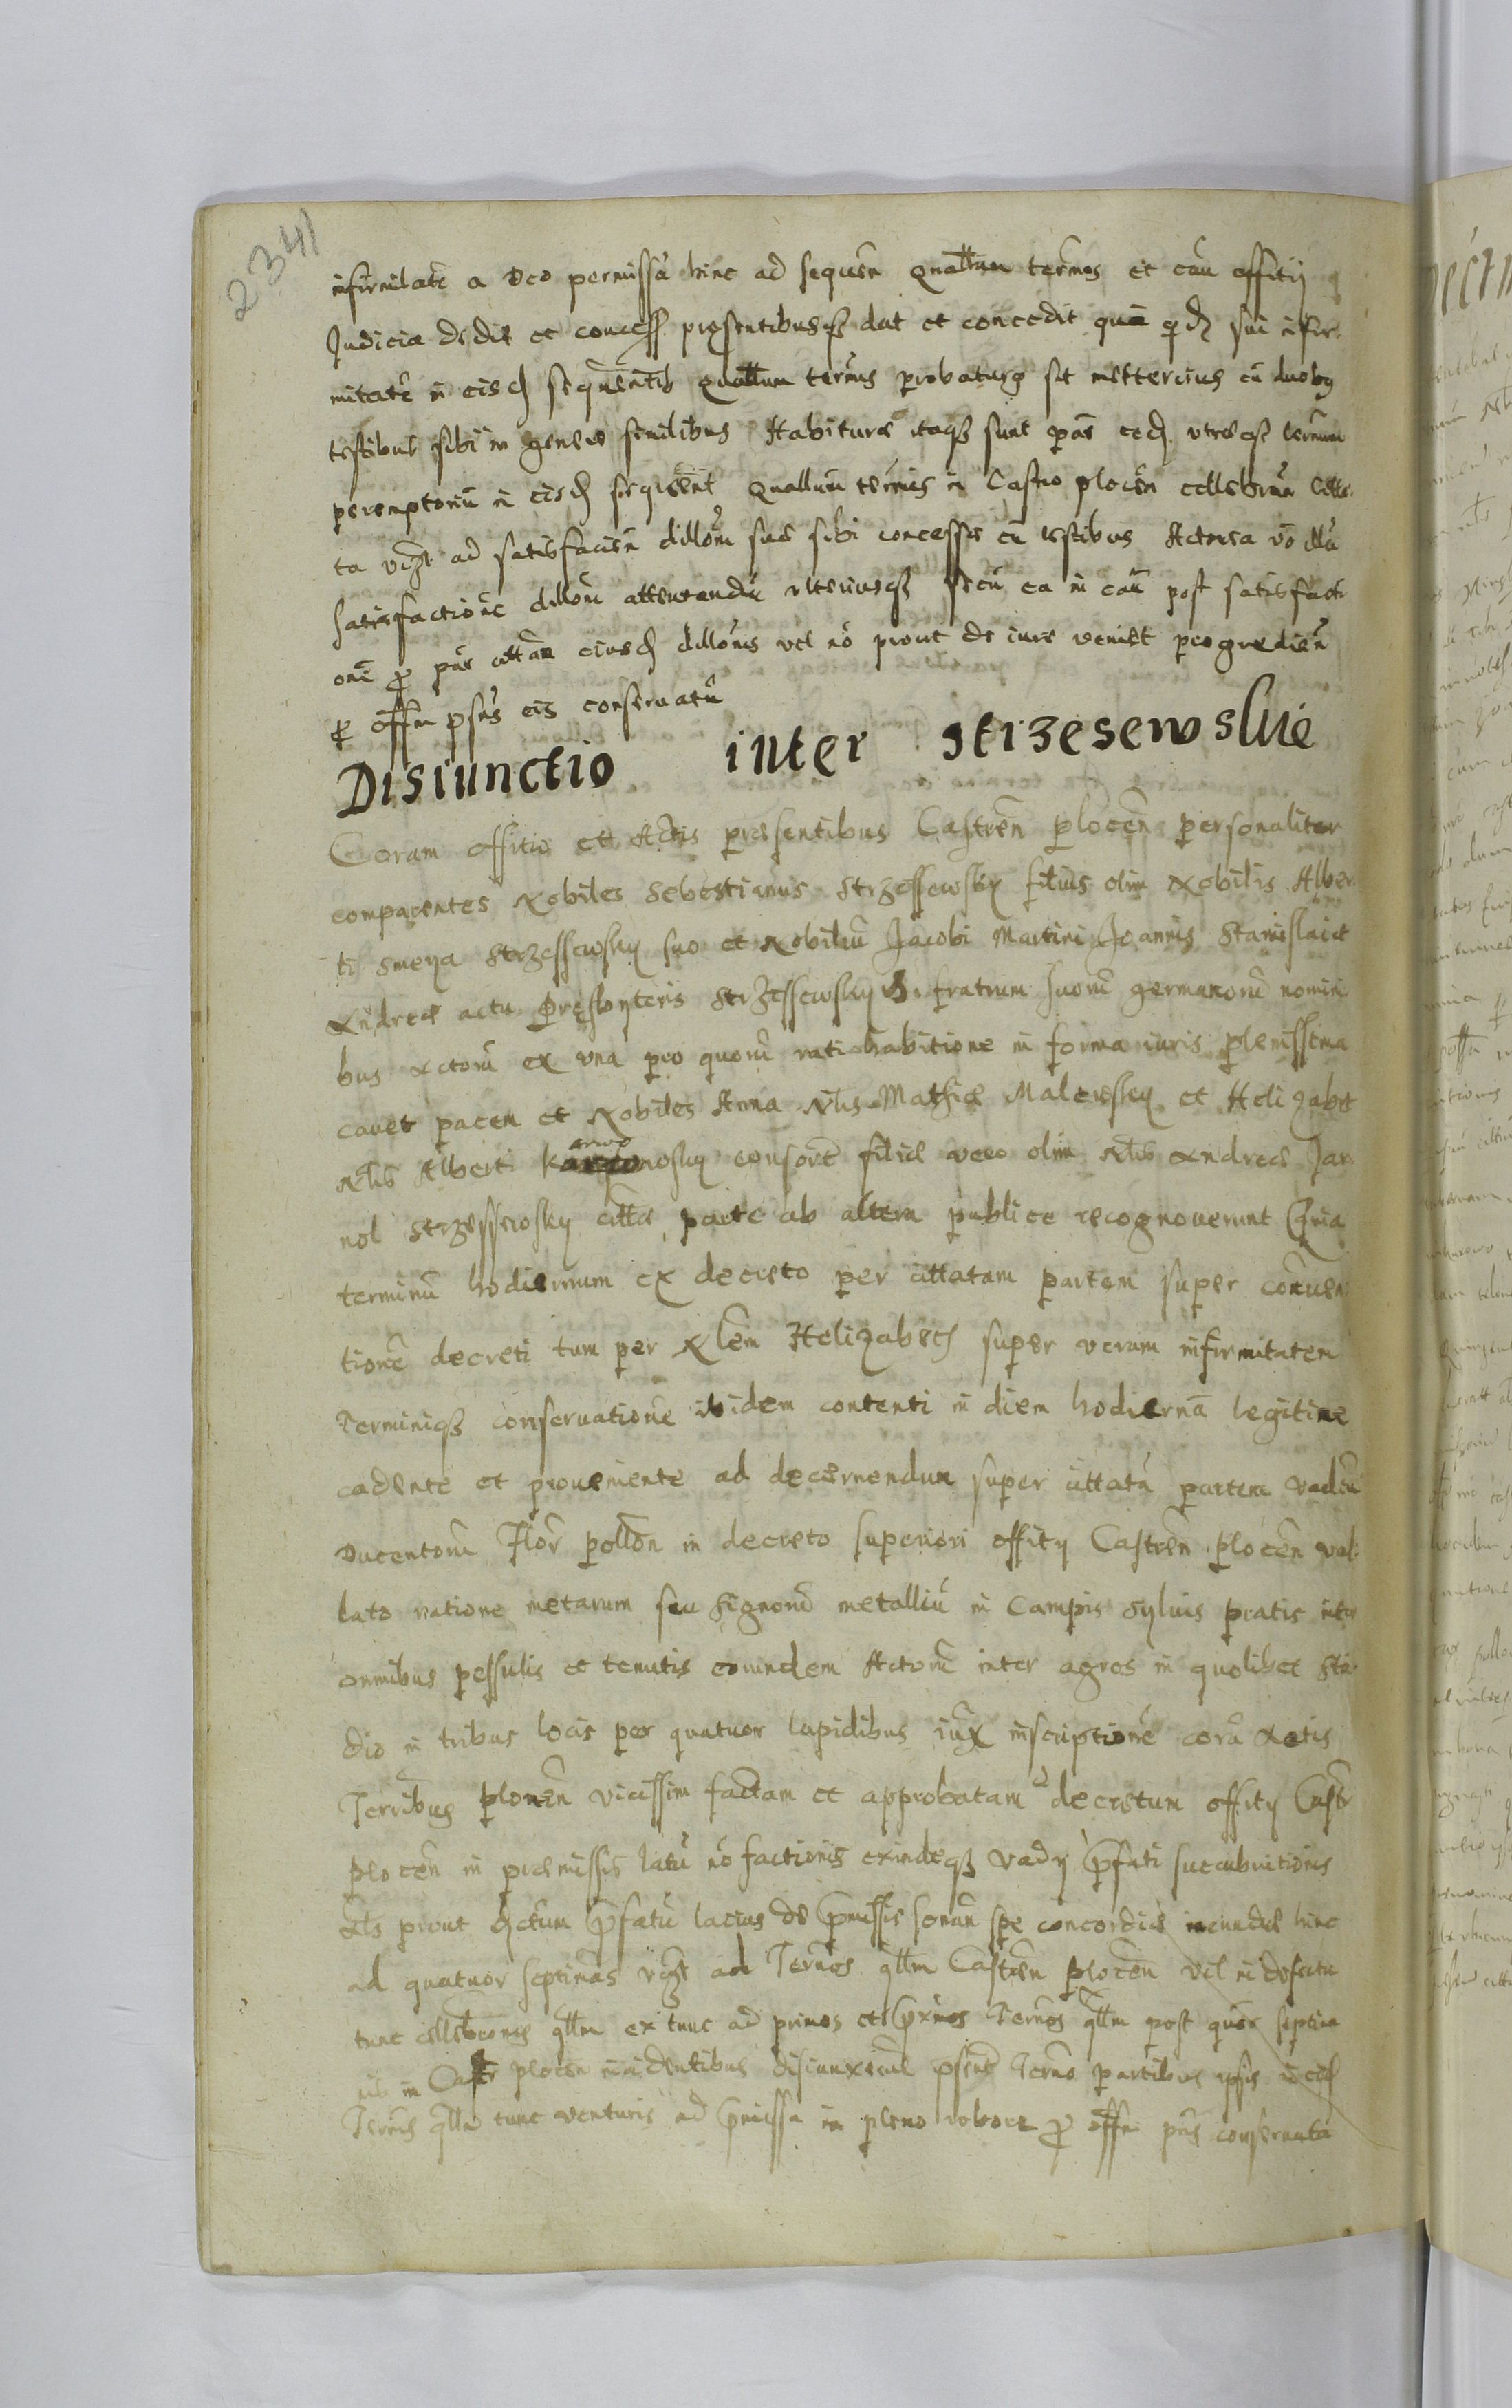 2341
infirmitate a Deo permissa hinc ad sequen quallum termos et cau offitij
Judicia dedit et concess presentibusqз dat et concedit qua qd sui infir
mitate in eisd sequentib quallum termis probaturg sit mettercius cu duobus
testibus sibi in genere similibus Habiture itaqз sunt pars eed utreqз termum
peremptoriu in eisd sequent quallum termis in Castro plocen cellebran Citta
ta vidzt ad satisfacien dillom sue sibi concesse cu testibus Actorea vo illa
satisfactione dillom attentandu ulteriusqз secu ea in cau post satisfacti
one p pars citta eiusd dillonis vel no prout de iure veniet progredien
p offm psns eis conservatu
Disiunctio inter Strzesewskie
Coram offitio et Actis presentibus Castren plocen personaliter
comparentes Nobiles Sebestianus Strzessewsky filius olim Nobilis Alber
ti Smeya Strzessewsky suo et Nobiliu Jacobi Martini Joannis Stanislai et
Andree actu Presbyteris Strzessewsky fratrum suom germanom nomini
bus Actoru ex una pro quom ratihabitione in forma iuris plenissima
cavet pacen et Nobiles Anna Nlis Mathie Malewsky et Helizabet
Nlis Alberti Karwowosky consort filie vero olim Nlis Andree Jar
nol Strzessewsky citta parte ab altera publice recognoverunt Quia
terminu hodiernum ex decreto per cittatam partem super convin
tione decreti tum per Nlem Helizabeth super veram infirmitatem
Terminiqз conservatione ibidem contenti in diem hodierna legitime
cadente et proveniente ad decernendum super cittata partem vadiu
Ducentom Flor pollon in decreto superiori offity Castren plocen val
lato ratione metarum seu signom metalliu in Campis sylvis pratis inter
omnibus pessulis et tenutis eorundem Actoru inter agros in quolibet sta
dio in tribus locis per quatuor lapidibus iux inscriptione cora Actis
Terribus plocen vicissim factam et approbatam decretum offity Castr
plocen in premissis latu no factionis exindeqз vady pfati succubuitionis
Als prout actum pfatu lacius de pmissis sonan spe concordie ineunde hinc
ad quatuor septimas vidzt ad Termos qllm Castren plocen vel in defectu
tunc cellebronis qllm ex tunc ad primos et pximos Termos qllm post quor septima
in Castr plocen incidentibus disiunxerunt psent Termo partibus ipsis in eisd
Termis qllm tunc venturis ad pmissa in pleno robore p offm pns conservata